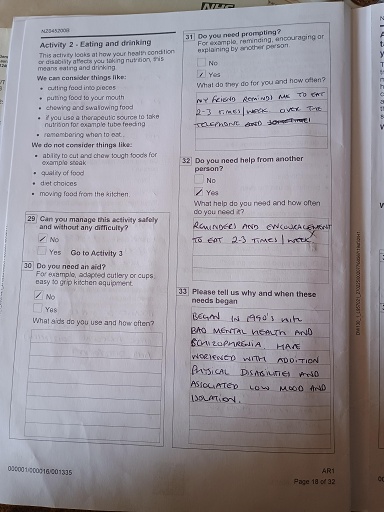 Activity 2 - Eating and drinking
This activity looks at how your health condition
or disability affects you taking nutrition, this
means eating and drinking.
We can consider things like:
• cutting food into pieces
• putting food to your mouth
• chewing and swallowing food
• if you use a therapeutic source to take
nutrition for example tube feeding
• remembering when to eat.
We do not consider things like:
• ability to cut and chew tough foods for
example steak
• quality of food
• diet choices
• moving food from the kitchen.
29 Can you manage this activity safely
and without any difficulty?
✓ No
Yes Go to Activity 3
30 Do you need an aid?
For example, adapted cutlery or cups,
easy to grip kitchen equipment.
✓ No
Yes
What aids do you use and how often?
000001/000016/001335
31 Do you need prompting?
For example, reminding, encouraging or
explaining by another person.
No
✓ Yes
What do they do for you and how often?
MY FRIEND REMINDS ME TO EAT
2-3 TIMES/WEEK OVER THE
TELEPHONE
32 Do you need help from another
person?
No
✓ Yes
What help do you need and how often
do you need it?
REMINDERS AND ENCOURAGEMENT
TO EAT 2-3 TIMES/WEEK
33 Please tell us why and when these
needs began
BEGAN IN 1990's with
BAD MENTAL HEALTH AND
SCHIZOPHRENIA. HAVE
WORSENED WITH ADDITION
PHYSICAL DISABILITIES AND
ASSOCIATED LOW MOOD AND
ISOLATION.
AR1
Page 18 of 32